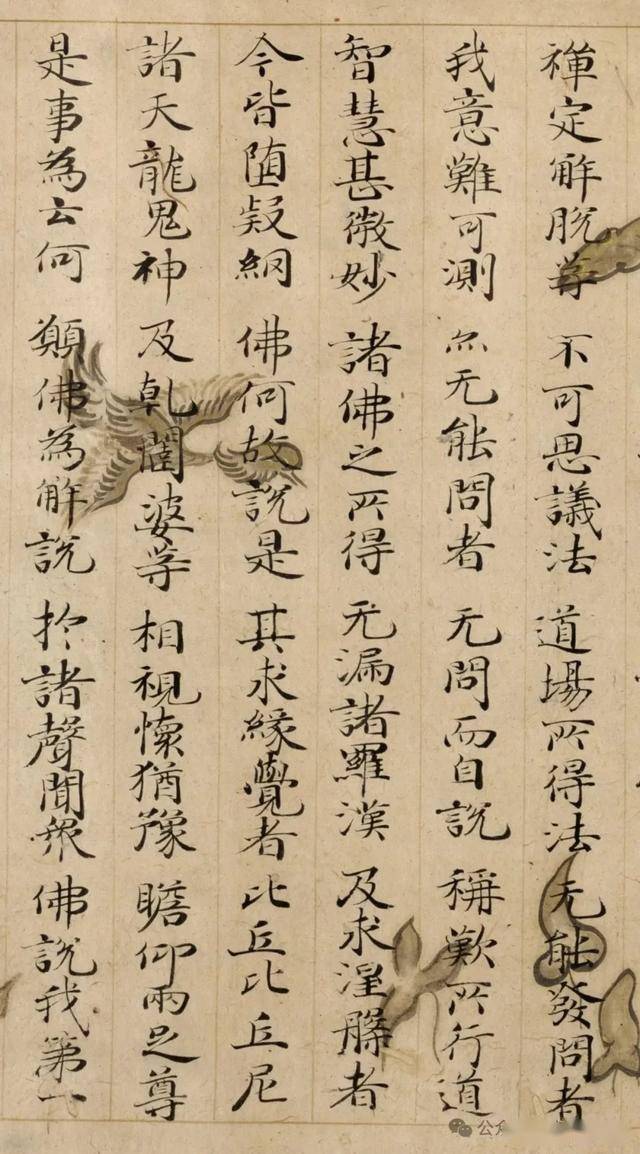 禅定解脱等 不可思議法 道場所得法 无能發問者
我意難可測 亦无能問者 无問而自說 稱歎所行道
智慧甚微妙 諸佛之所得 无漏諸羅漢 及求涅槃者
今皆墮疑網 佛何故說是 其求緣覺者 比丘比丘尼
諸天龍鬼神 及乹闥婆等 相視懷猶豫 瞻仰兩足尊
是事為云何 願佛為解說 於諸聲聞衆 佛說我第一
公众